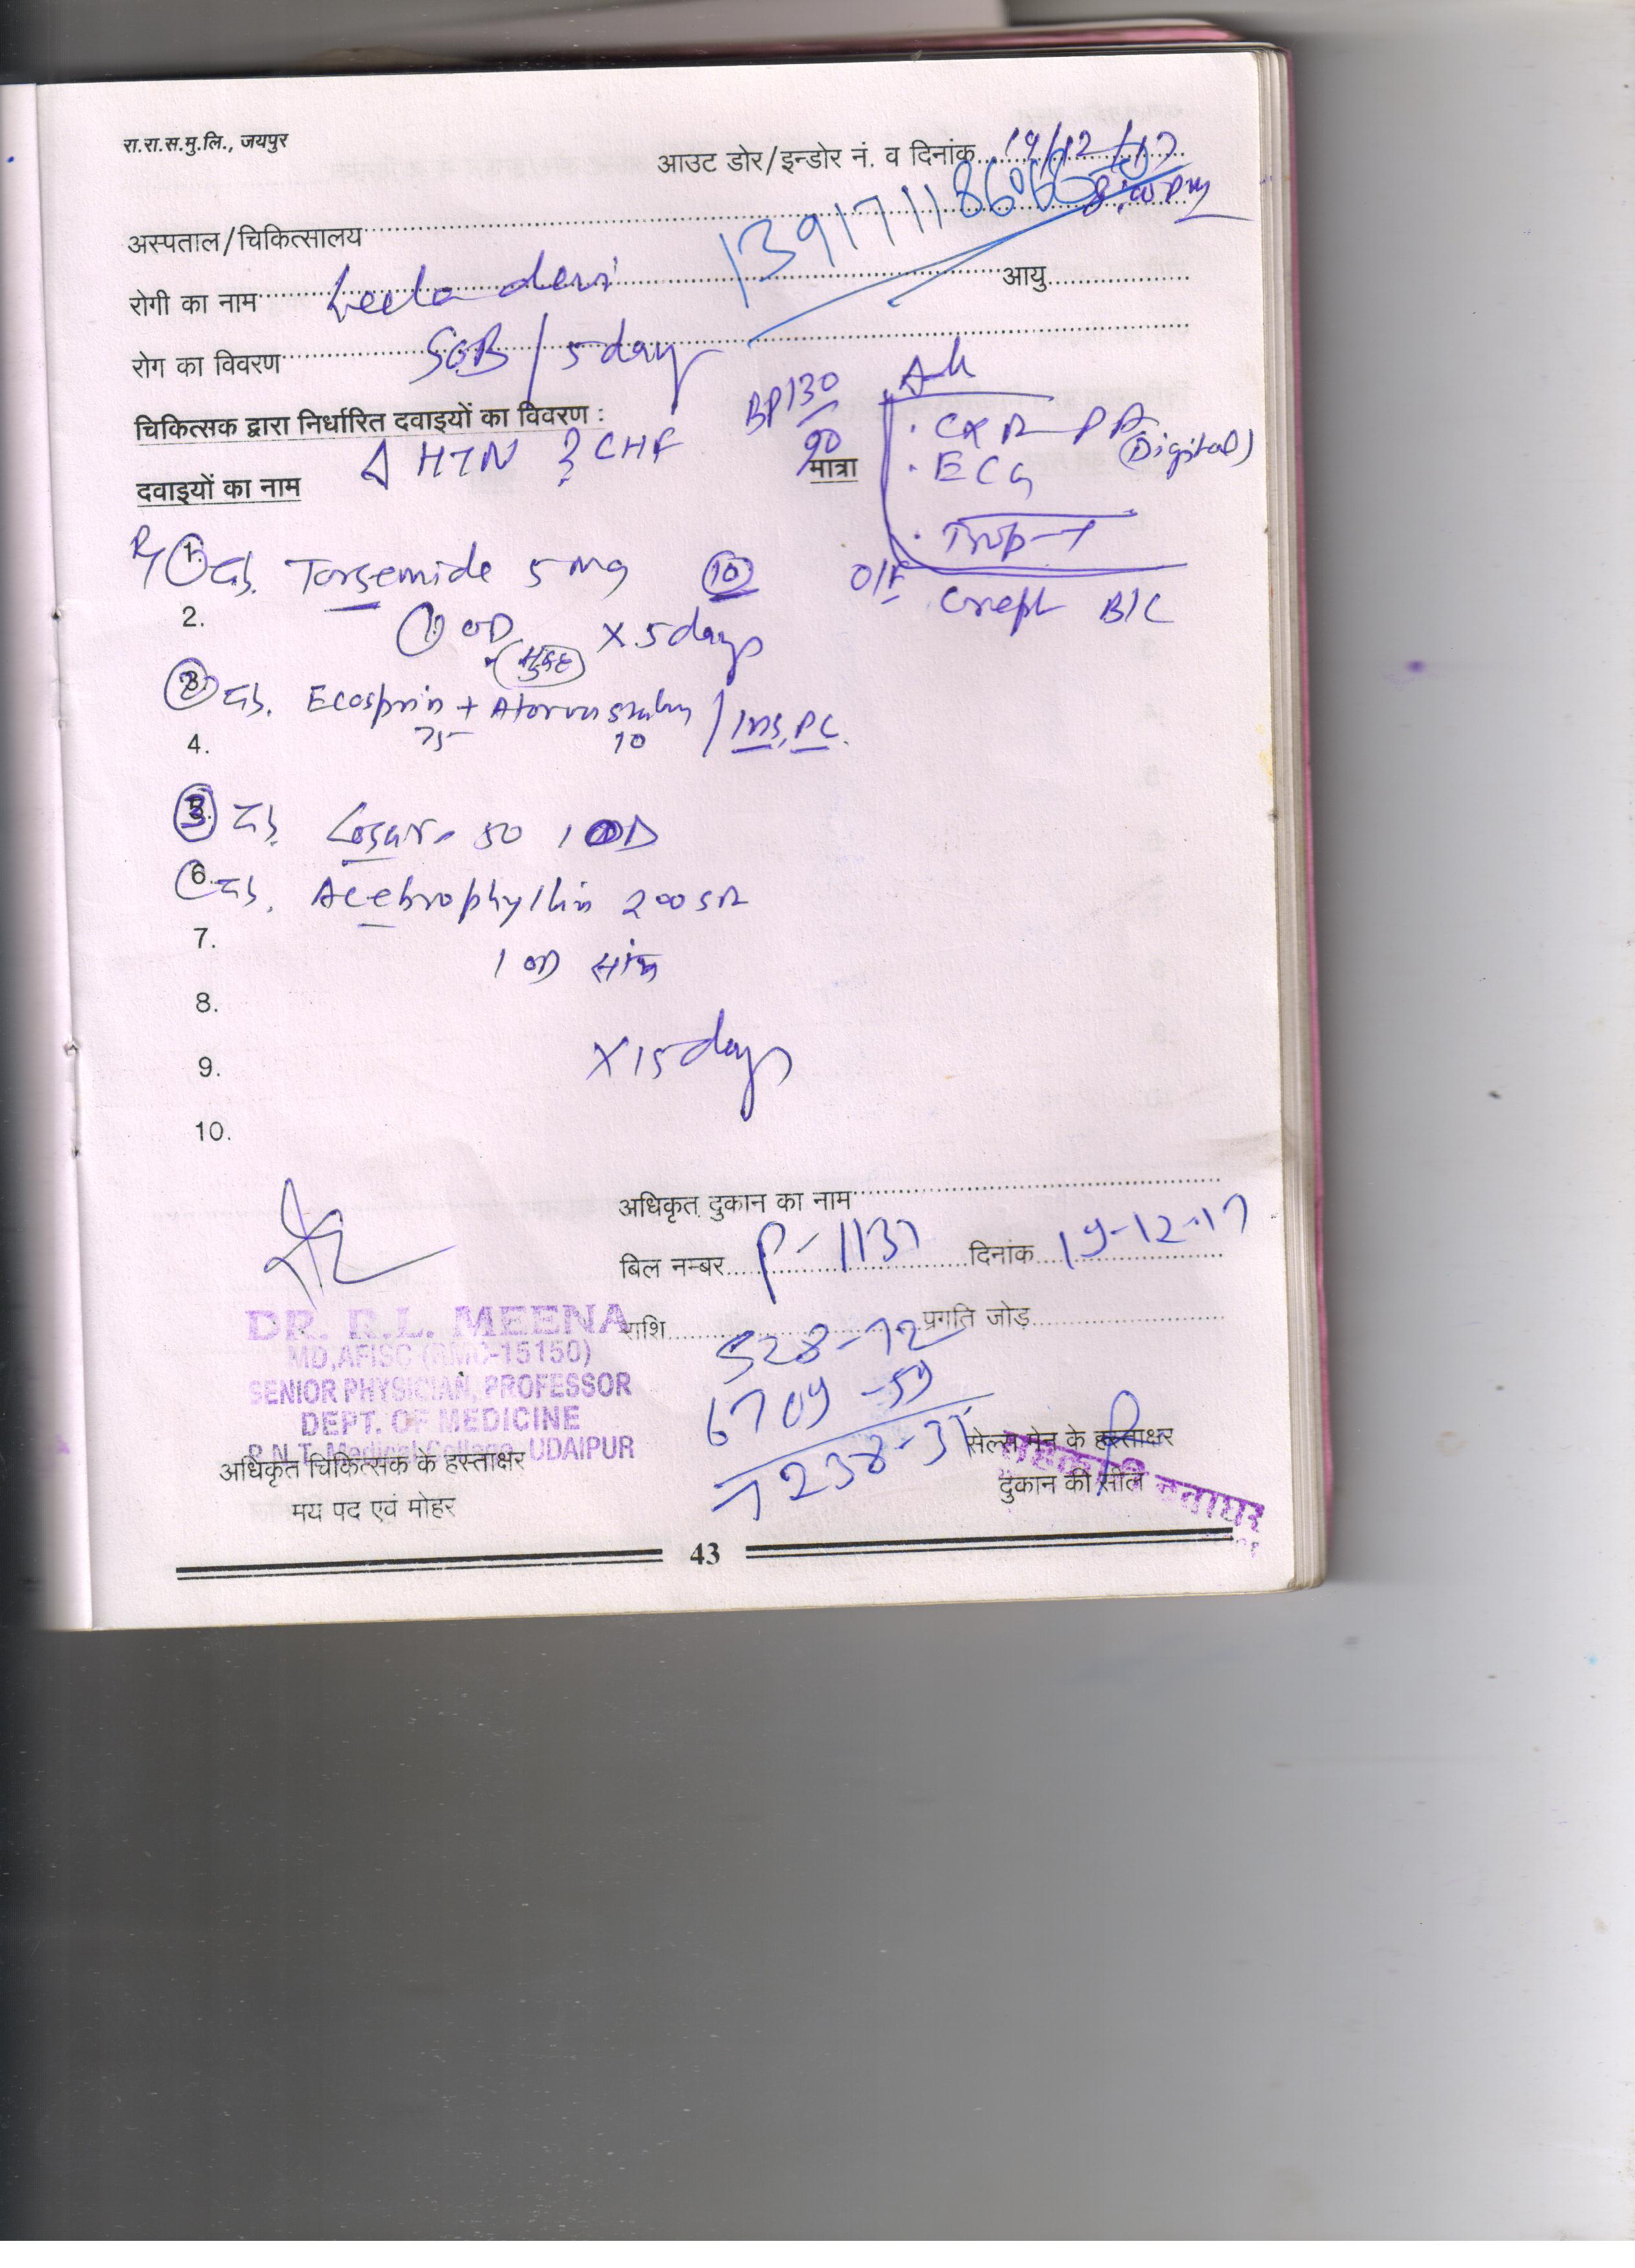 रा.रा.स.मु.लि., जयपुर
आउट डोर/इन्डोर नं. व दिनांक 19/12/17
8:00 pm
अस्पताल/चिकित्सालय
रोगी का नाम Leela devi आयु
रोग का विवरण SOB / 5 day
चिकित्सक द्वारा निर्धारित दवाइयों का विवरण :
BP 130/90
Δ HTN ? CHF
दवाइयों का नाम मात्रा
CXR PA (Digital)
ECG
Trop-T
O/E Crept B/L
Rx 1. Torsemide 5 mg 10
2. 1 OD सुबह x 5 days
Ecosprin + Atorvastatin
75 10
4.
3 Losar- 50 1 OD
6. Acebrophyllin 200 SR
7. 1 OD सांय
8.
x 15 days
9.
10.
अधिकृत दुकान का नाम
बिल नम्बर P-1137 दिनांक 19-12-17
राशि 528-72 प्रगति जोड़
6709-59
7238-31
DR. R.L. MEENA
MD,AFISC (RMC-15150)
SENIOR PHYSICIAN, PROFESSOR
DEPT. OF MEDICINE
R.N.T. Medical College, UDAIPUR
अधिकृत चिकित्सक के हस्ताक्षर
मय पद एवं मोहर
सेल्स मेन के हस्ताक्षर
दुकान की सील
43